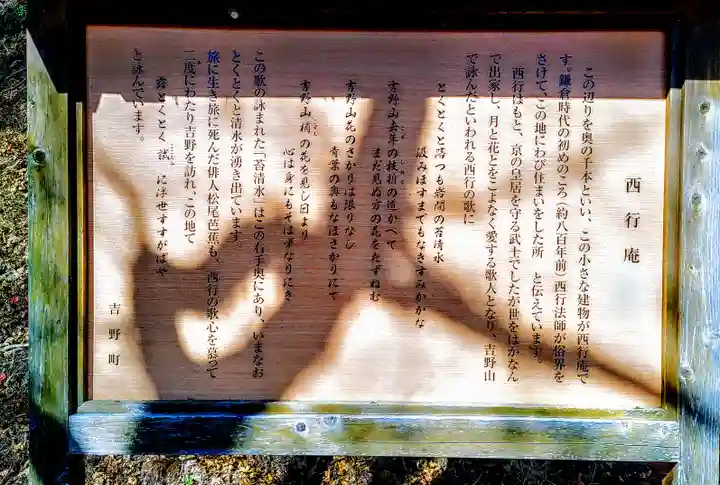 西行庵
この辺りを奥の千本といい、この小さな建物が西行庵で
す。鎌倉時代の初めのころ(約八百年前)西行法師が俗界を
さけて、この地にわび住まいをした所　と伝えています。
西行はもと、京の皇居を守る武士でしたが世をはかなん
で出家し、月と花とをこよなく愛する歌人となり、吉野山
で詠んだといわれる西行の歌に
とくとくと落つる岩間の苔清水
汲みほすまでもなきすみかかな
吉野山去年の枝折の道かへて
まだ見ぬ方の花をたずねむ
吉野山花のさかりは限りなし
青葉の奥もなほさかりにて
吉野山梢の花を見し日より
心は身にもそはずなりにき
この歌の詠まれた「苔清水」はこの右手奥にあり、いまなお
とくとくと清水が湧き出ています。
旅に生き旅に死んだ俳人松尾芭蕉も、西行の歌心を慕って
二度にわたり吉野を訪れ、この地で
露とくとく試に浮世すすがばや
と詠んでいます。
吉野町